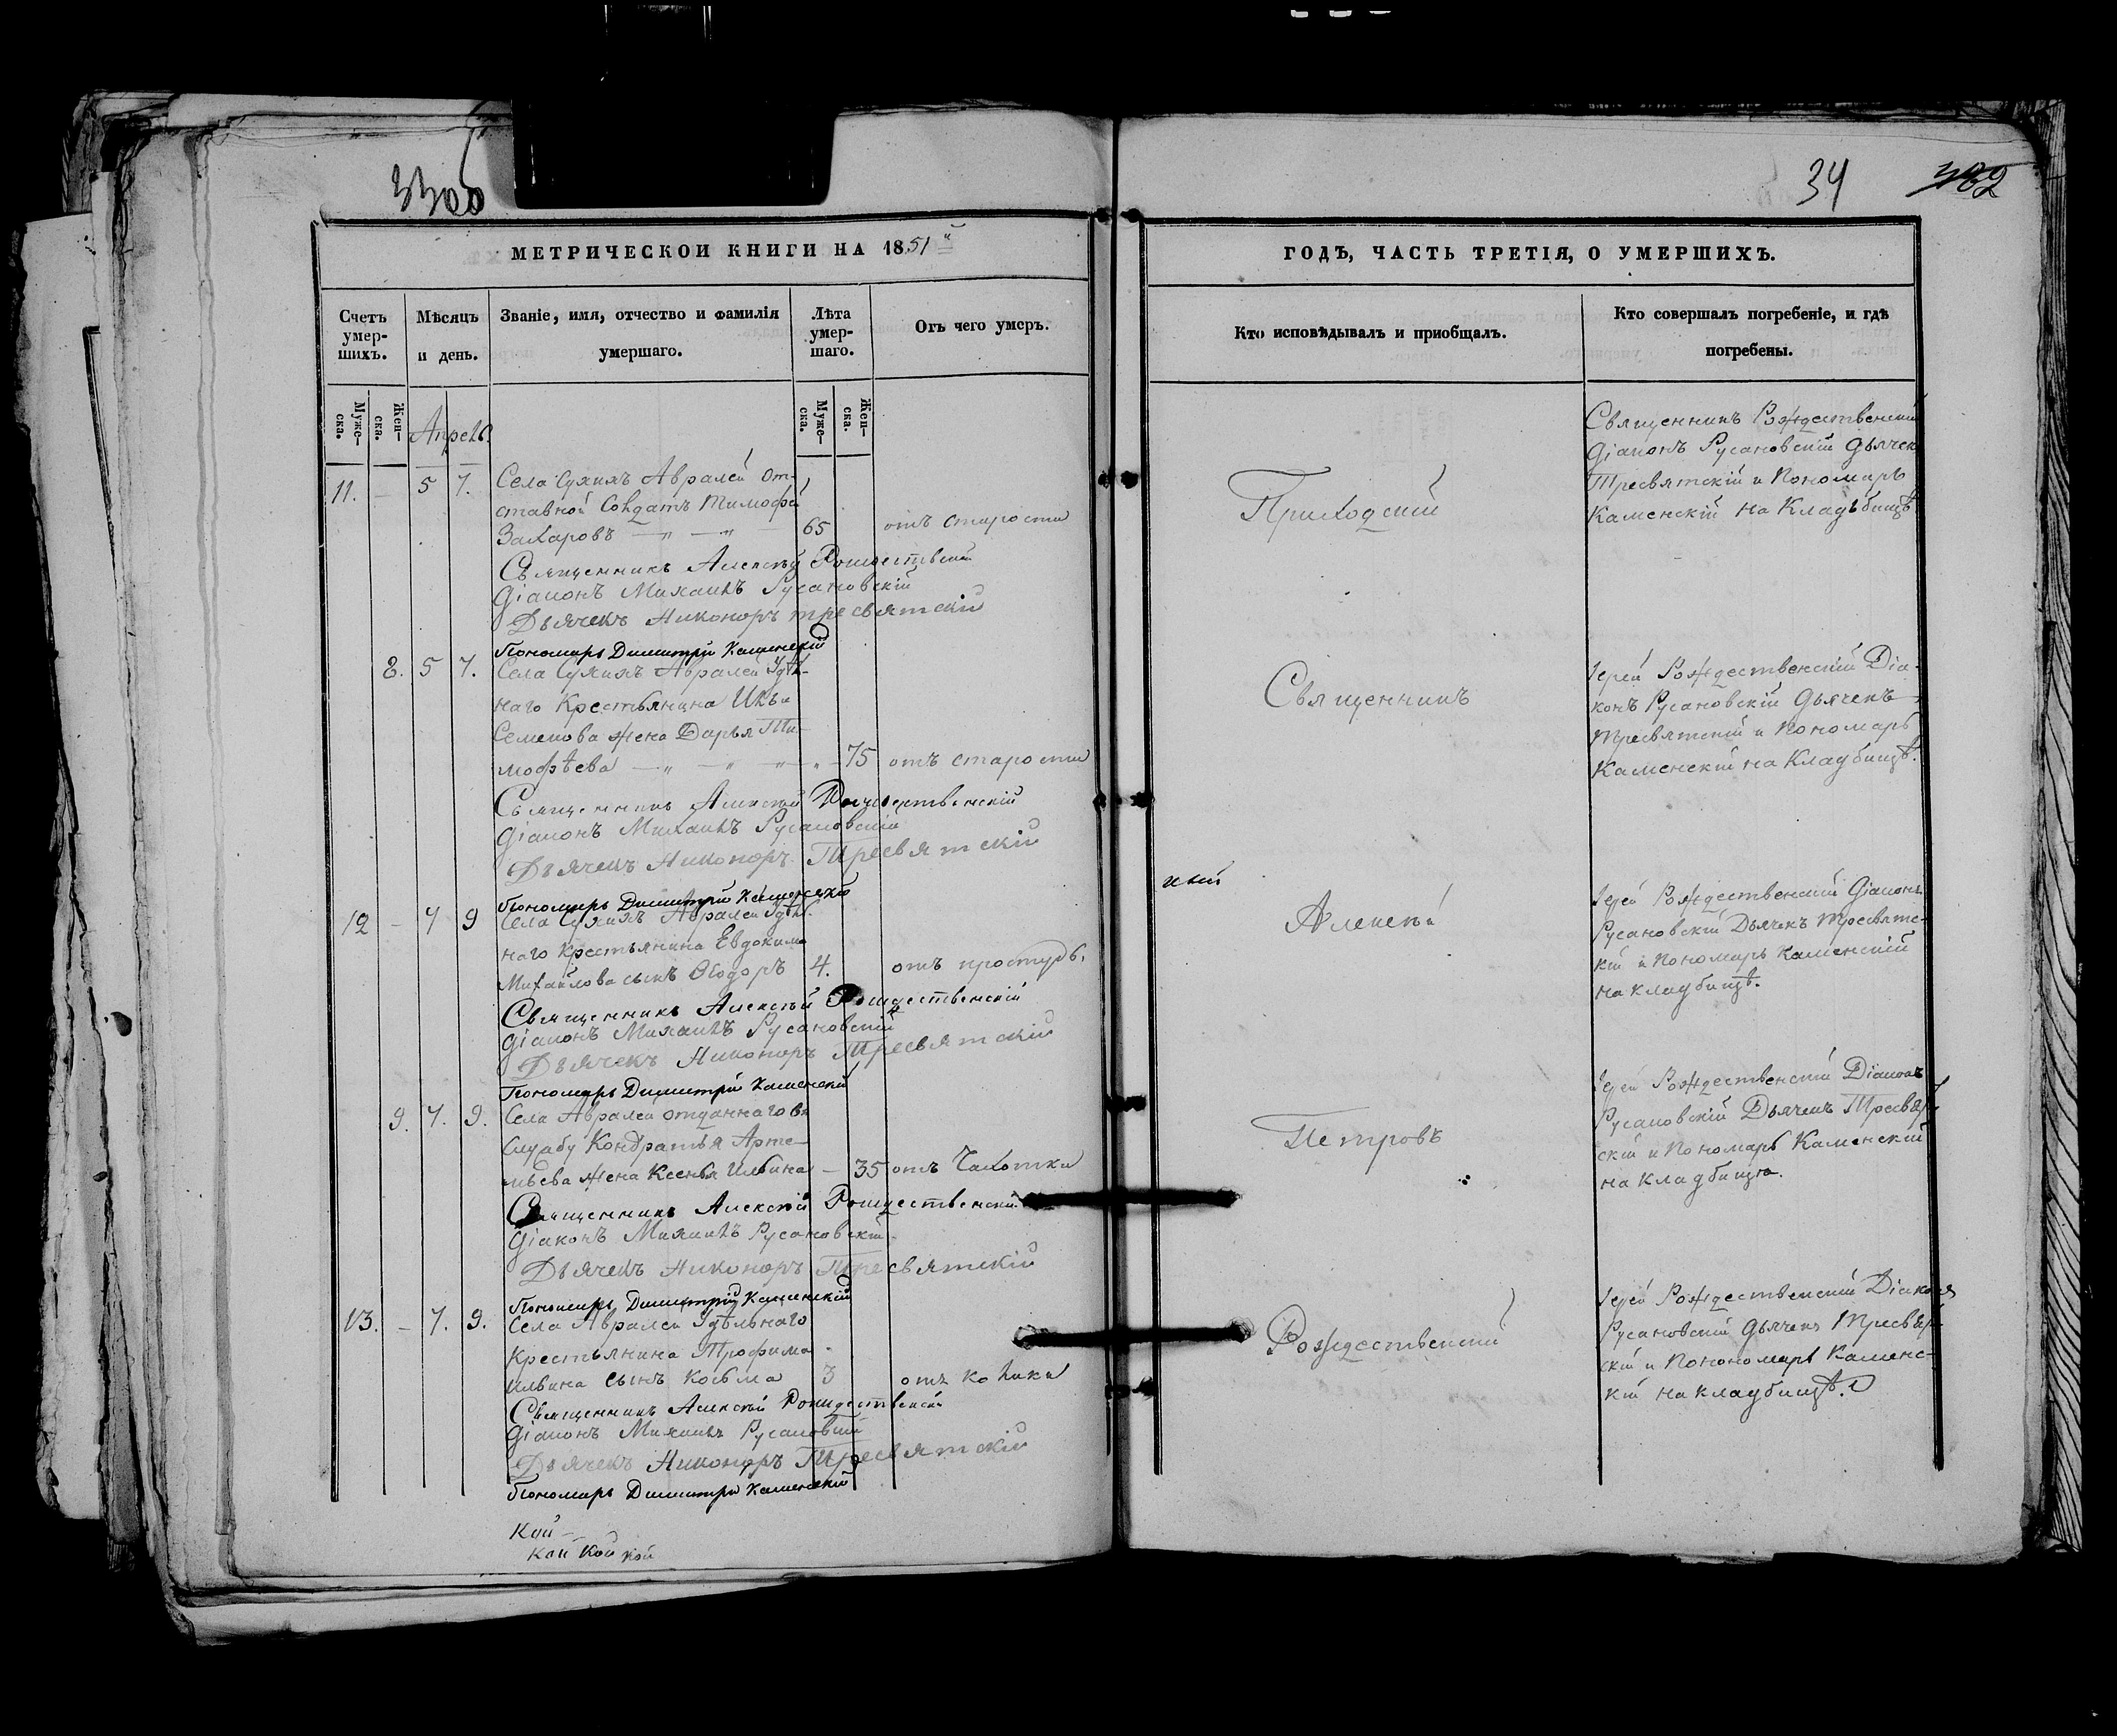 34
МЕТРИЧЕСКОЙ КНИГИ НА 1851й
ГОДЪ, ЧАСТЬ ТРЕТІЯ, О УМЕРШИХЪ.
Счетъ умер-шихъ.
Мѣсяцъ и день.
Званіе, имя, отчество и фамилія умершаго.
Лѣта умер-шаго.
Отъ чего умеръ.
Кто исповѣдывалъ и приобщалъ.
Кто совершалъ погребеніе, и гдѣ погребены.
Муже-ска.
Жен-ска.
Муже-ска.
Жен-ска.
Апрель.
11. – 5 7. Села Сухихъ Авралей от-
ставной Солдатъ Тимофей
Захаровъ — „ — „ 65 отъ старости
Священникъ Алексѣй Рождественскій
Діаконъ Михаилъ Русановскій
Дьячекъ Никоноръ Тресвятскій
Пономарь Димитрій Каменскій
Приходскій
Священникъ Рождественскій
Діаконъ Русановскій Дьячекъ
Тресвятскій и Пономарь
Каменскій на Кладьбищѣ
8. 5 7. Села Сухихъ Авралей Удѣль-
наго Крестьянина Ильи
Семенова жена Дарья Ти-
мофѣева — „ — „ — „ – 75 отъ старости
Священникъ Алексѣй Рождественскій
Діаконъ Михаилъ Русановскій
Дьячекъ Никоноръ Тресвятскій
Пономарь Димитрій Каменскій
Священникъ
Іерей Рождественскій Діа-
конъ Русановскій Дьячекъ
Тресвятскій и Пономарь
Каменскій на Кладбищѣ.
12 – 7 9 Села Сухихъ Авралей Удѣль.
наго Крестьянина Евдокима
Михайлова сынъ Ѳеодоръ 4. отъ простуды.
Священникъ Алексѣй Рождественскій
Діаконъ Михаилъ Русановскій
Дьячекъ Никоноръ Тресвятскій
Пономарь Димитрій Каменскій
Алексѣй
Іерей Рождественскій Діаконъ
Русановскій Дьячекъ Тресвятс-
кій и Пономарь Каменскій
на кладбищѣ.
9. 7. 9. Села Авралей отданнаго въ
Службу Кондратья Арте-
мьева жена Ксенья Ильина – 35 отъ Чахотки
Священникъ Алексѣй Рождественскій
Діаконъ Михаилъ Русановскій
Дьячекъ Никоноръ Тресвятскій
Пономарь Димитрій Каменскій
Петровъ
Іерей Рождественскій Діаконъ
Русановскій Дьячекъ Тресвят-
скій и Пономарь Каменскій
на кладбищѣ.
13. – 7. 9. Села Авралей Удѣльнаго
Крестьянина Трофима
Ильина сынъ Козьма 3 отъ колики
Священникъ Алексѣй Рождественскій
Діаконъ Михаилъ Русановскій
Дьячекъ Никоноръ Тресвятскій
Пономарь Димитрій Каменскій
Рождественскій
Іерей Рождественскій Діаконъ
Русановскій Дьячекъ Тресвят-
скій и Пономарь Каменс-
кій на кладбищѣ.
кой
кой кой кой